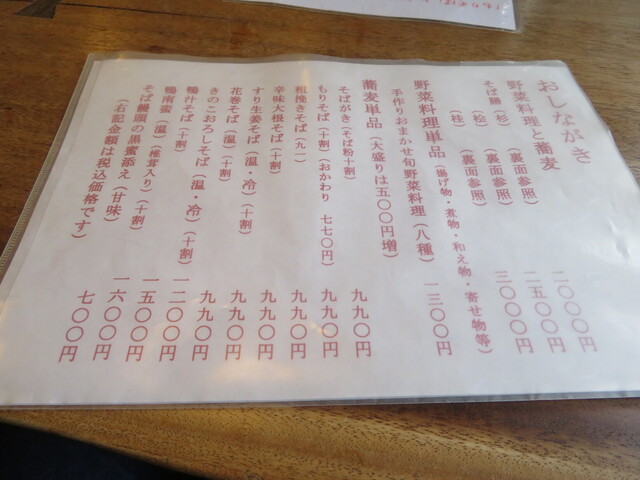 おしながき
野菜料理と蕎麦
そば膳(杉)(裏面参照) 二〇〇〇円
(桧)(裏面参照) 二五〇〇円
(桂)(裏面参照) 三〇〇〇円
野菜料理単品(揚げ物・煮物・和え物・寄せ物等)
手作りおまかせ旬野菜料理(八種) 一三〇〇円
蕎麦単品(大盛りは五〇〇円増)
そばがき(そば粉十割) 九九〇円
もりそば(十割)(おかわり 七七〇円) 九九〇円
粗挽きそば(九一) 九九〇円
辛味大根そば(十割) 九九〇円
すり生姜そば(温・冷)(十割) 九九〇円
花巻そば(温)(十割) 九九〇円
きのこおろしそば(温・冷)(十割) 一二〇〇円
鴨汁そば(十割) 一五〇〇円
鴨南蛮(温)(椎茸入り)(十割) 一六〇〇円
そば饅頭の黒蜜添え(甘味) 七〇〇円
(右記金額は税込価格です)